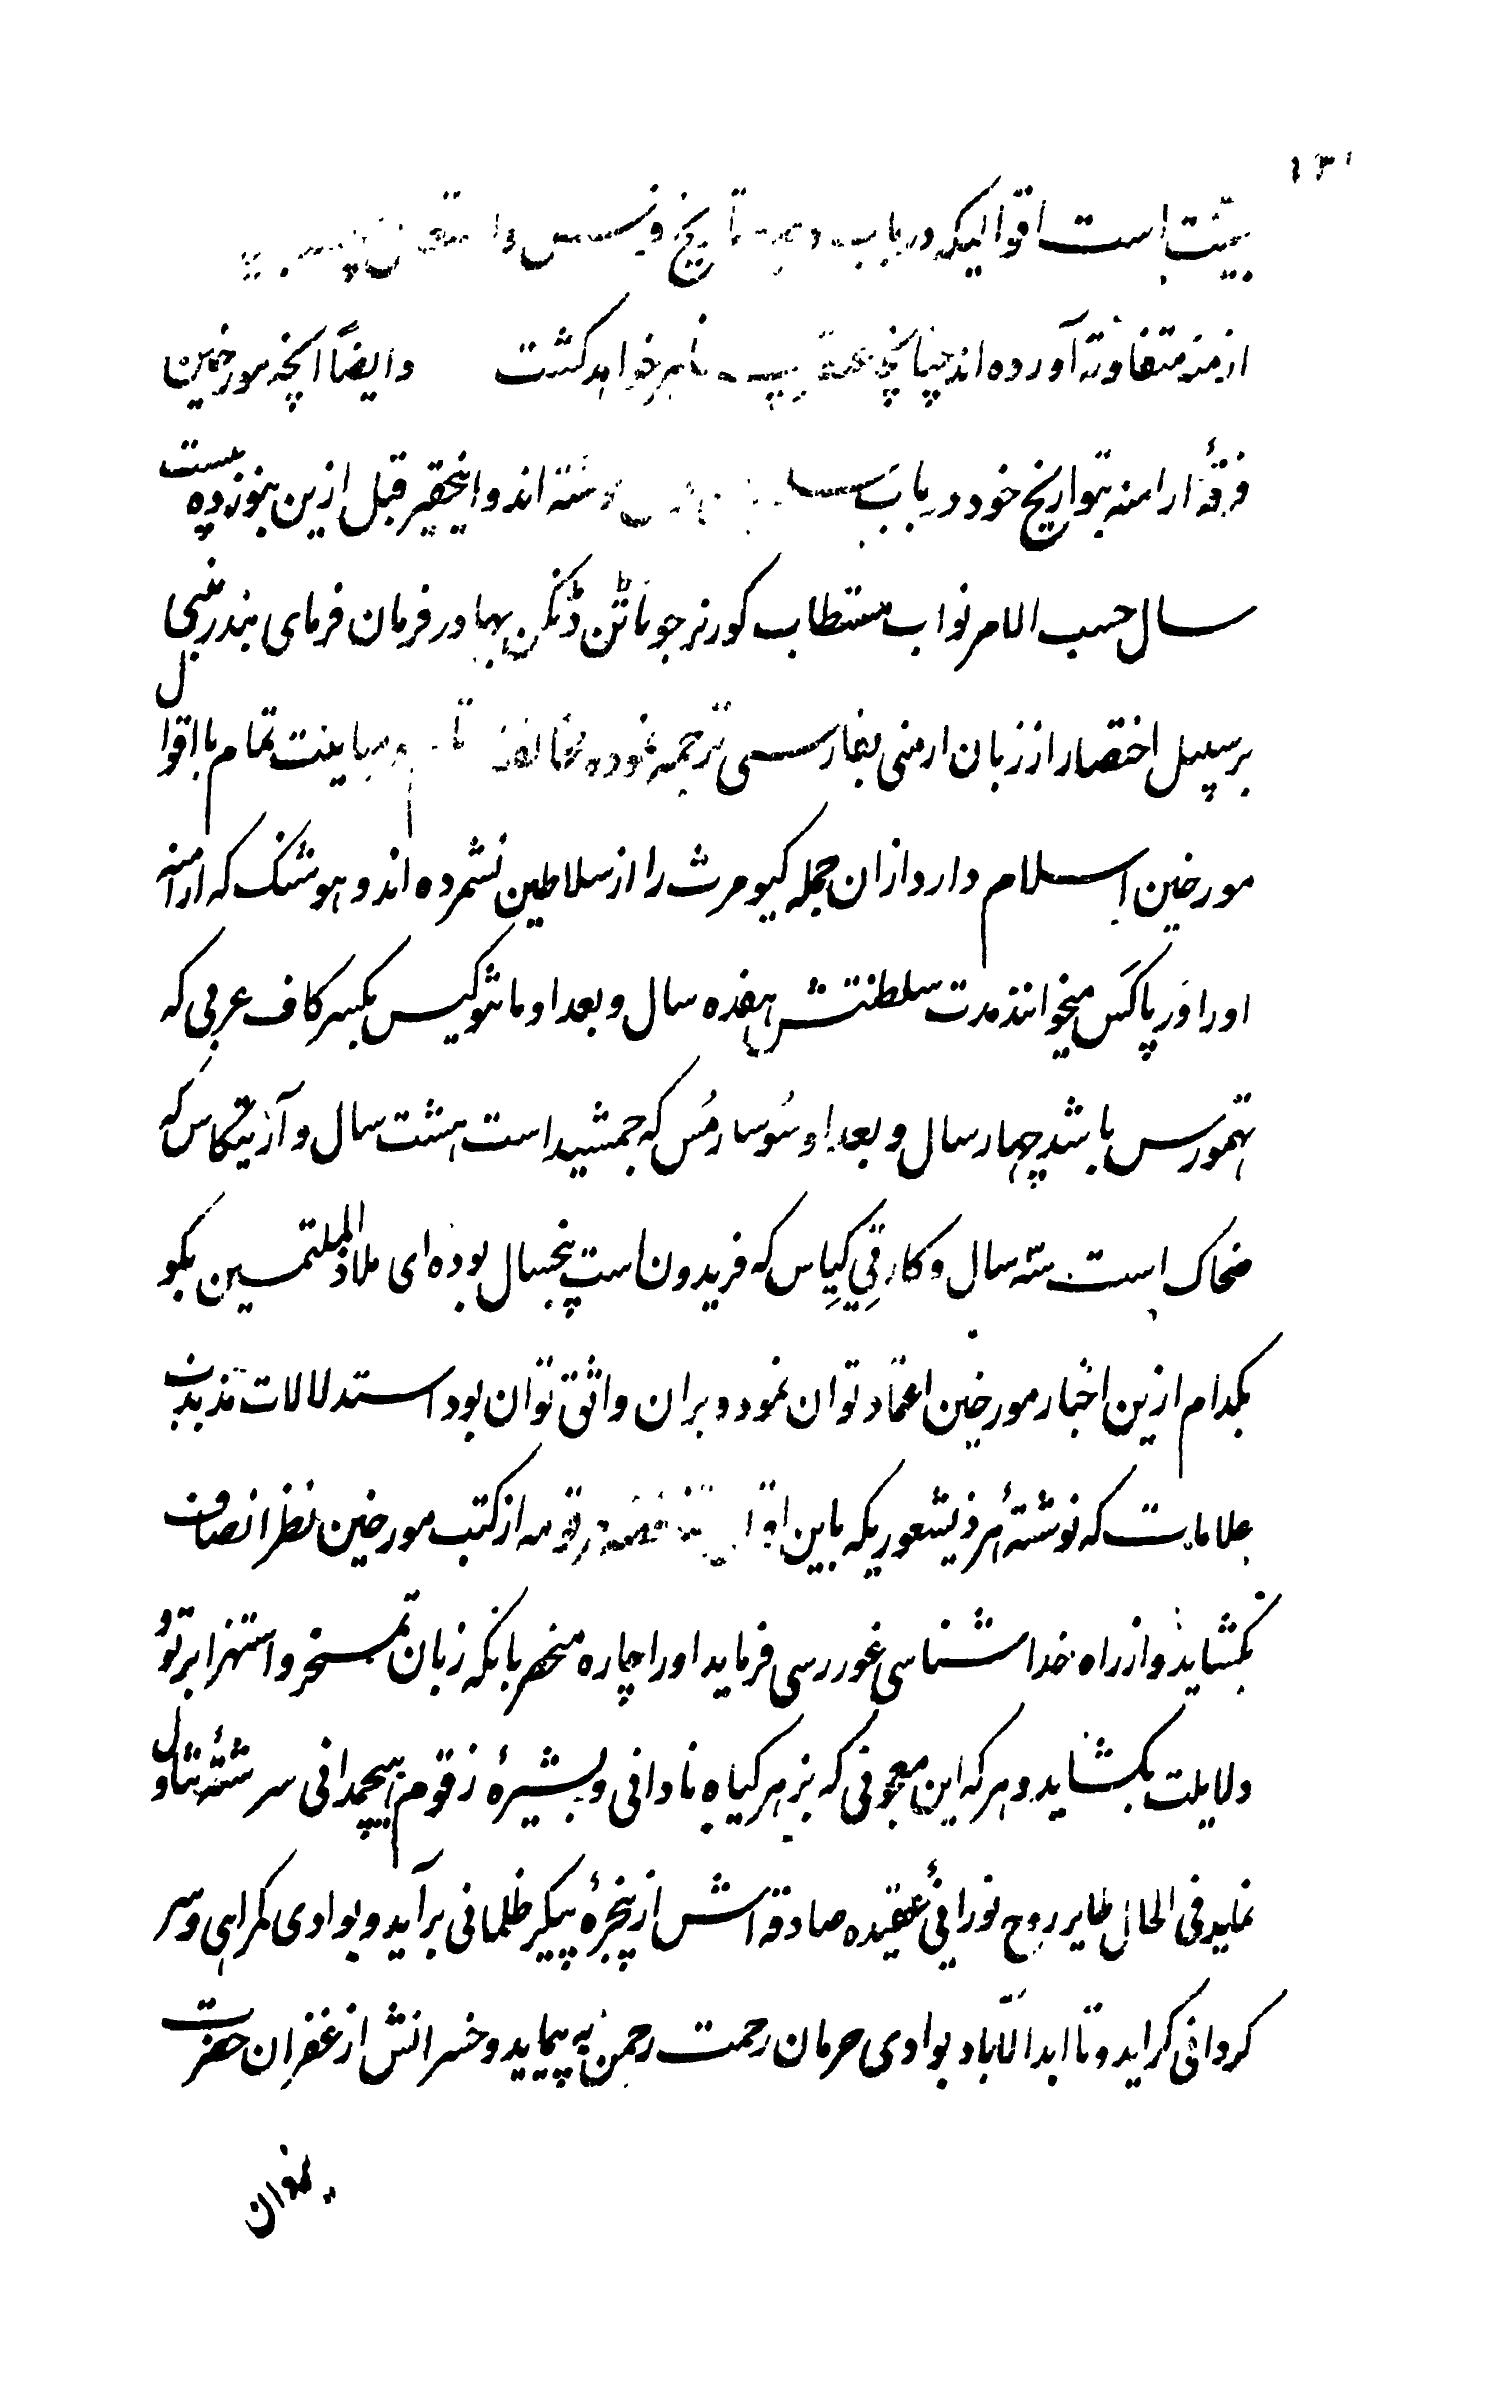 ۱۳۰
است اقوالیکه در باب تاریخ فرس و
ازمنه متفاوته آورده اند چنانچه عنقریب ظاهر خواهد کشت وایضاً انچه مورخین
فرقهٔ ارامنه بتواریخ خود در باب نوشته اند و اینحقیر قبل ازین بنوزده بیست
سال حسب الامر نواب مستطاب کورنر جوناتن ڈنکن بهادر فرمان فرمای بندر بمبئی
بر سبیل اختصار از زبان ارمنی بفارسی ترجمه نموده مخالفت تام و مباینت تمام با اقوال
مورخین اسلام دارد ازان جمله کیومرث را از سلاطین نشمرده اند و هوشنک که ارامنه
اورا ور پاکس میخوانند مدت سلطنتش هفده سال و بعد او ماشوکیس بکسر کاف عربی که
تهمورس باشد چهار سال و بعد او سُوسارمُس که جمشید است هشت سال و آزیتکاس که
ضحاک است سته سال و کارقِیِ کیِاس که فریدون است پنجسال بوده ای ملاذ الملتمسین بکو
بکدام ازین اخبار مورخین اعتماد توان نمود و بران واثق توان بود استدلالات مذبذب
علامات که نوشتهٔ هر ذیشعوریکه باین اقوال متناقضه مرقومه از کتب مورخین نظر انصاف
بکشاید و از راه خدا شناسی غور رسی فرماید اورا چاره منحصر بانکه زبان تمسخر و استهزا بر تو و
دلایلت بکشاید و هر که این معجونی که بزهر کیاه نادانی و بشیرهٔ زقوم هیچمدانی سرشتهٔ تناول
نماید فی الحال طایر روح نورانیٔ عقیده صادقه اش از پنجرهٔ پیکر ظلمانی برآید و بوادی کمراهی و سر
کردانی کراید و تا ابد الآباد بوادی حرمان رحمت رحمن به پیماید و خسرانش از غفران حضرت